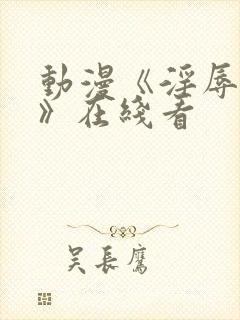 動漫《淫辱
》在綫看
吴長鷹